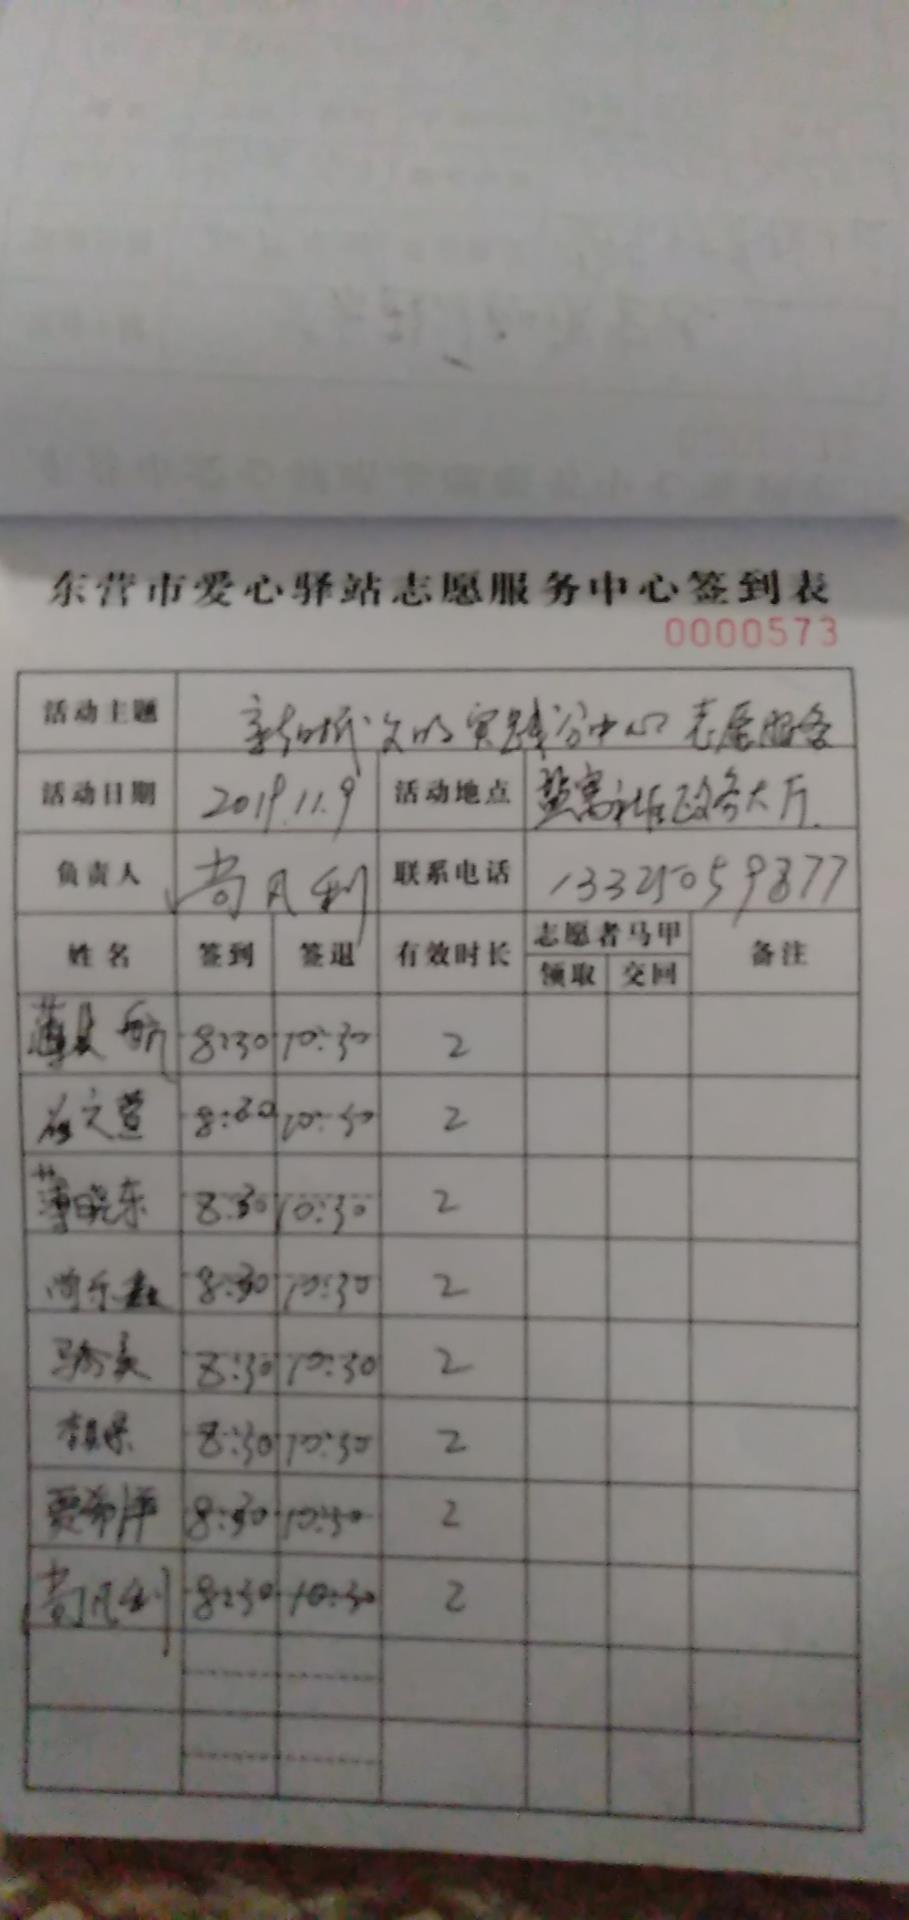 东营市爱心驿站志愿服务中心签到表
0000573
活动主题 新时代文明实践分中心志愿服务
活动日期 2019.11.9 活动地点 盐窝社区政务大厅
负责人 尚凡利 联系电话 13325059877
姓名 签到 签退 有效时长 志愿者马甲 备注
领取 交回
航 8:30 10:30 2
文萱 8:30 10:30 2
薄晓东 8:30 10:30 2
尚乐 8:30 10:30 2
8:30 10:30 2
8:30 10:30 2
贾希 8:30 10:30 2
尚凡利 8:30 10:30 2